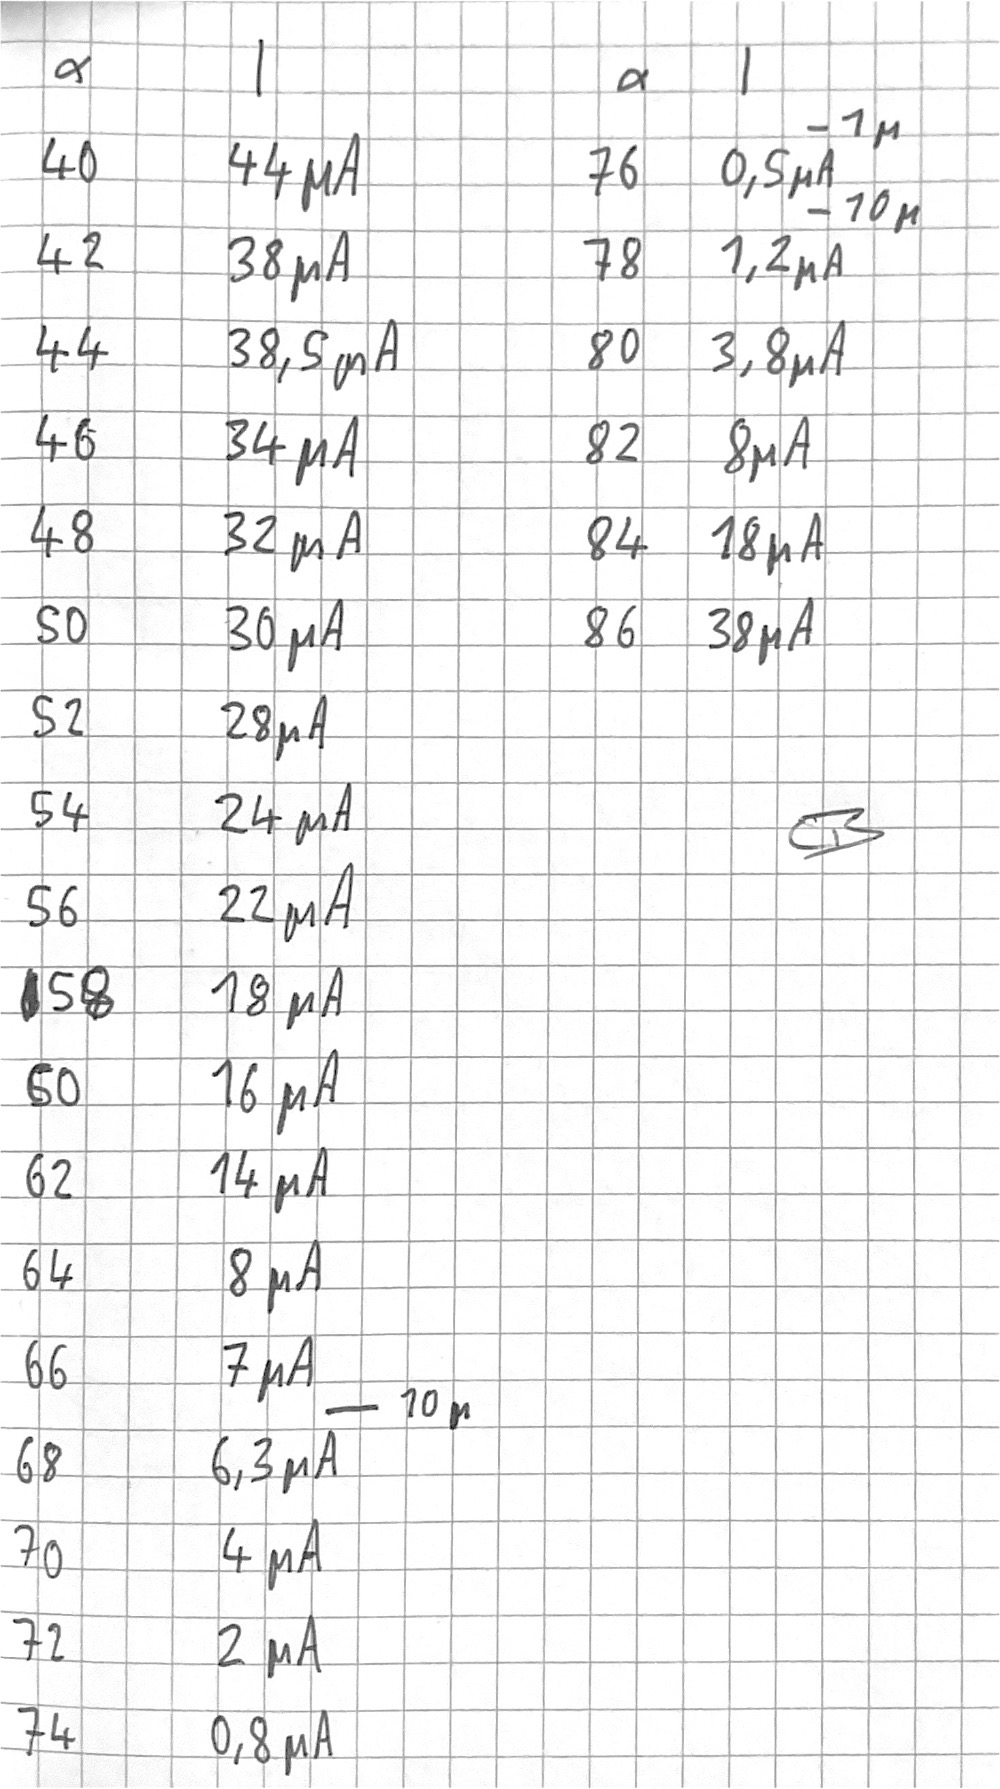 α I
40 44 μA
42 38 μA
44 38,5 μA
46 34 μA
48 32 μA
50 30 μA
52 28 μA
54 24 μA
56 22 μA
58 18 μA
60 16 μA
62 14 μA
64 8 μA
66 7 μA
— 10 μ
68 6,3 μA
70 4 μA
72 2 μA
74 0,8 μA
α I
– 1 μ
76 0,5 μA
– 10 μ
78 1,2 μA
80 3,8 μA
82 8 μA
84 18 μA
86 38 μA